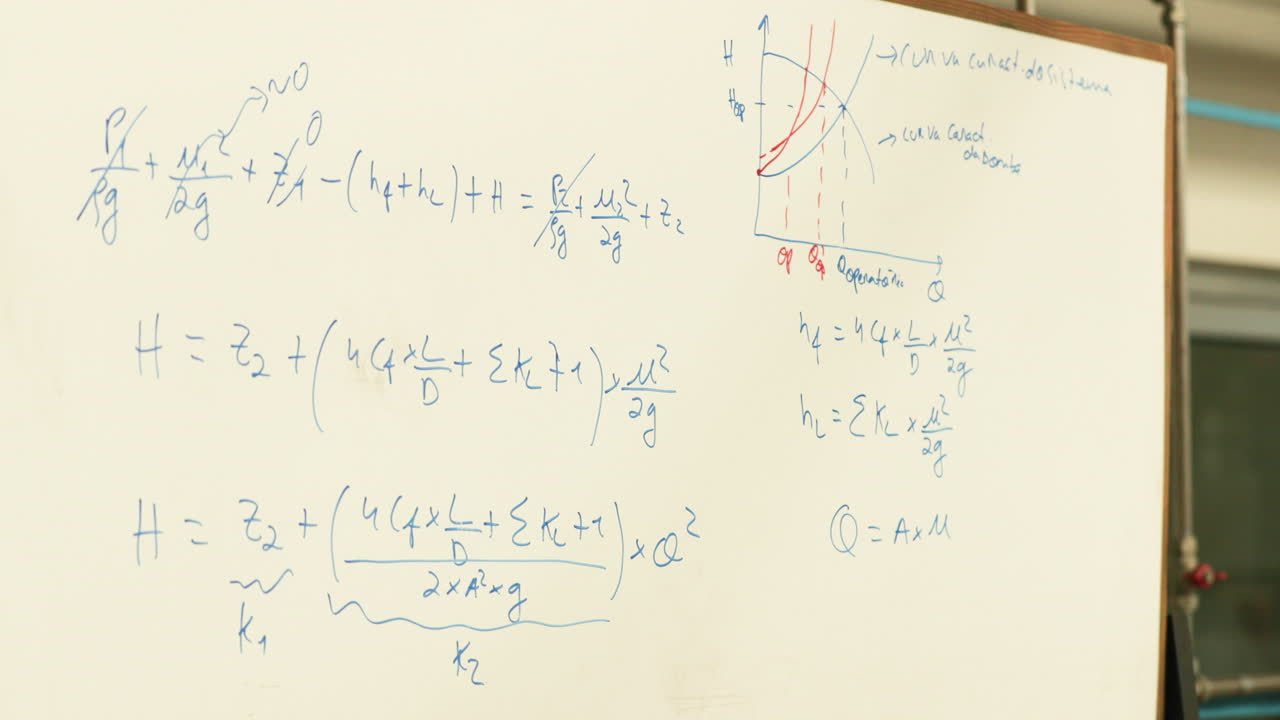 P₁/ρg + u₁²/2g + z₁ - (hf + hL) + H = P₂/ρg + u₂²/2g + z₂
~0
0
H = z₂ + (4Cf × L/D + ΣKL + 1) × u²/2g
H = z₂ + ((4Cf × L/D + ΣKL + 1)/(2 × A² × g)) × Q²
K₁
K₂
H
Hop
→ curva caract. do sistema
→ curva caract.
da bomba
op
Qop
Qoperatório
Q
hf = 4Cf × L/D × u²/2g
hL = ΣKL × u²/2g
Q = A × u